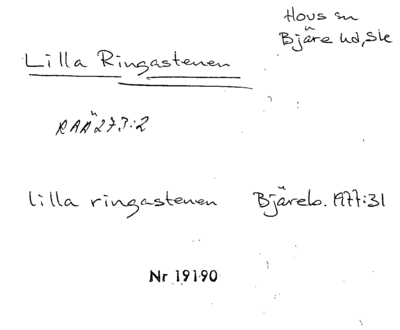 Hovs sn
Bjäre hd, Sk
Lilla Ringastenen
RAÄ 273:2
lilla ringastenen Bjäreb. 1977:31
Nr 19190